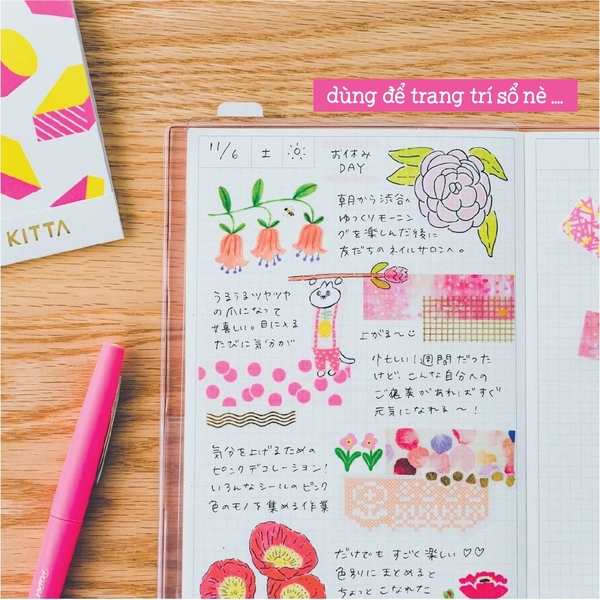 dùng để trang trí sổ nè ....
KITTA
11/6 土
お休み
DAY
朝から渋谷へ
ゆっくりモーニン
グを楽しんだ後に
友だちのネイルサロンへ。
うるうるツヤツヤ
の爪になって
嬉しい。目に入る
たびに気分が
上がる〜
忙しい1週間だった
けど、こんな自分への
ご褒美があればすぐ
元気になれる〜!
気分を上げるための
ピンクデコレーション!
いろんなシールのピンク
色のモノを集める作業
だけでも すごく楽しい♡♡
色別に まとめると
ちょっと こなれた